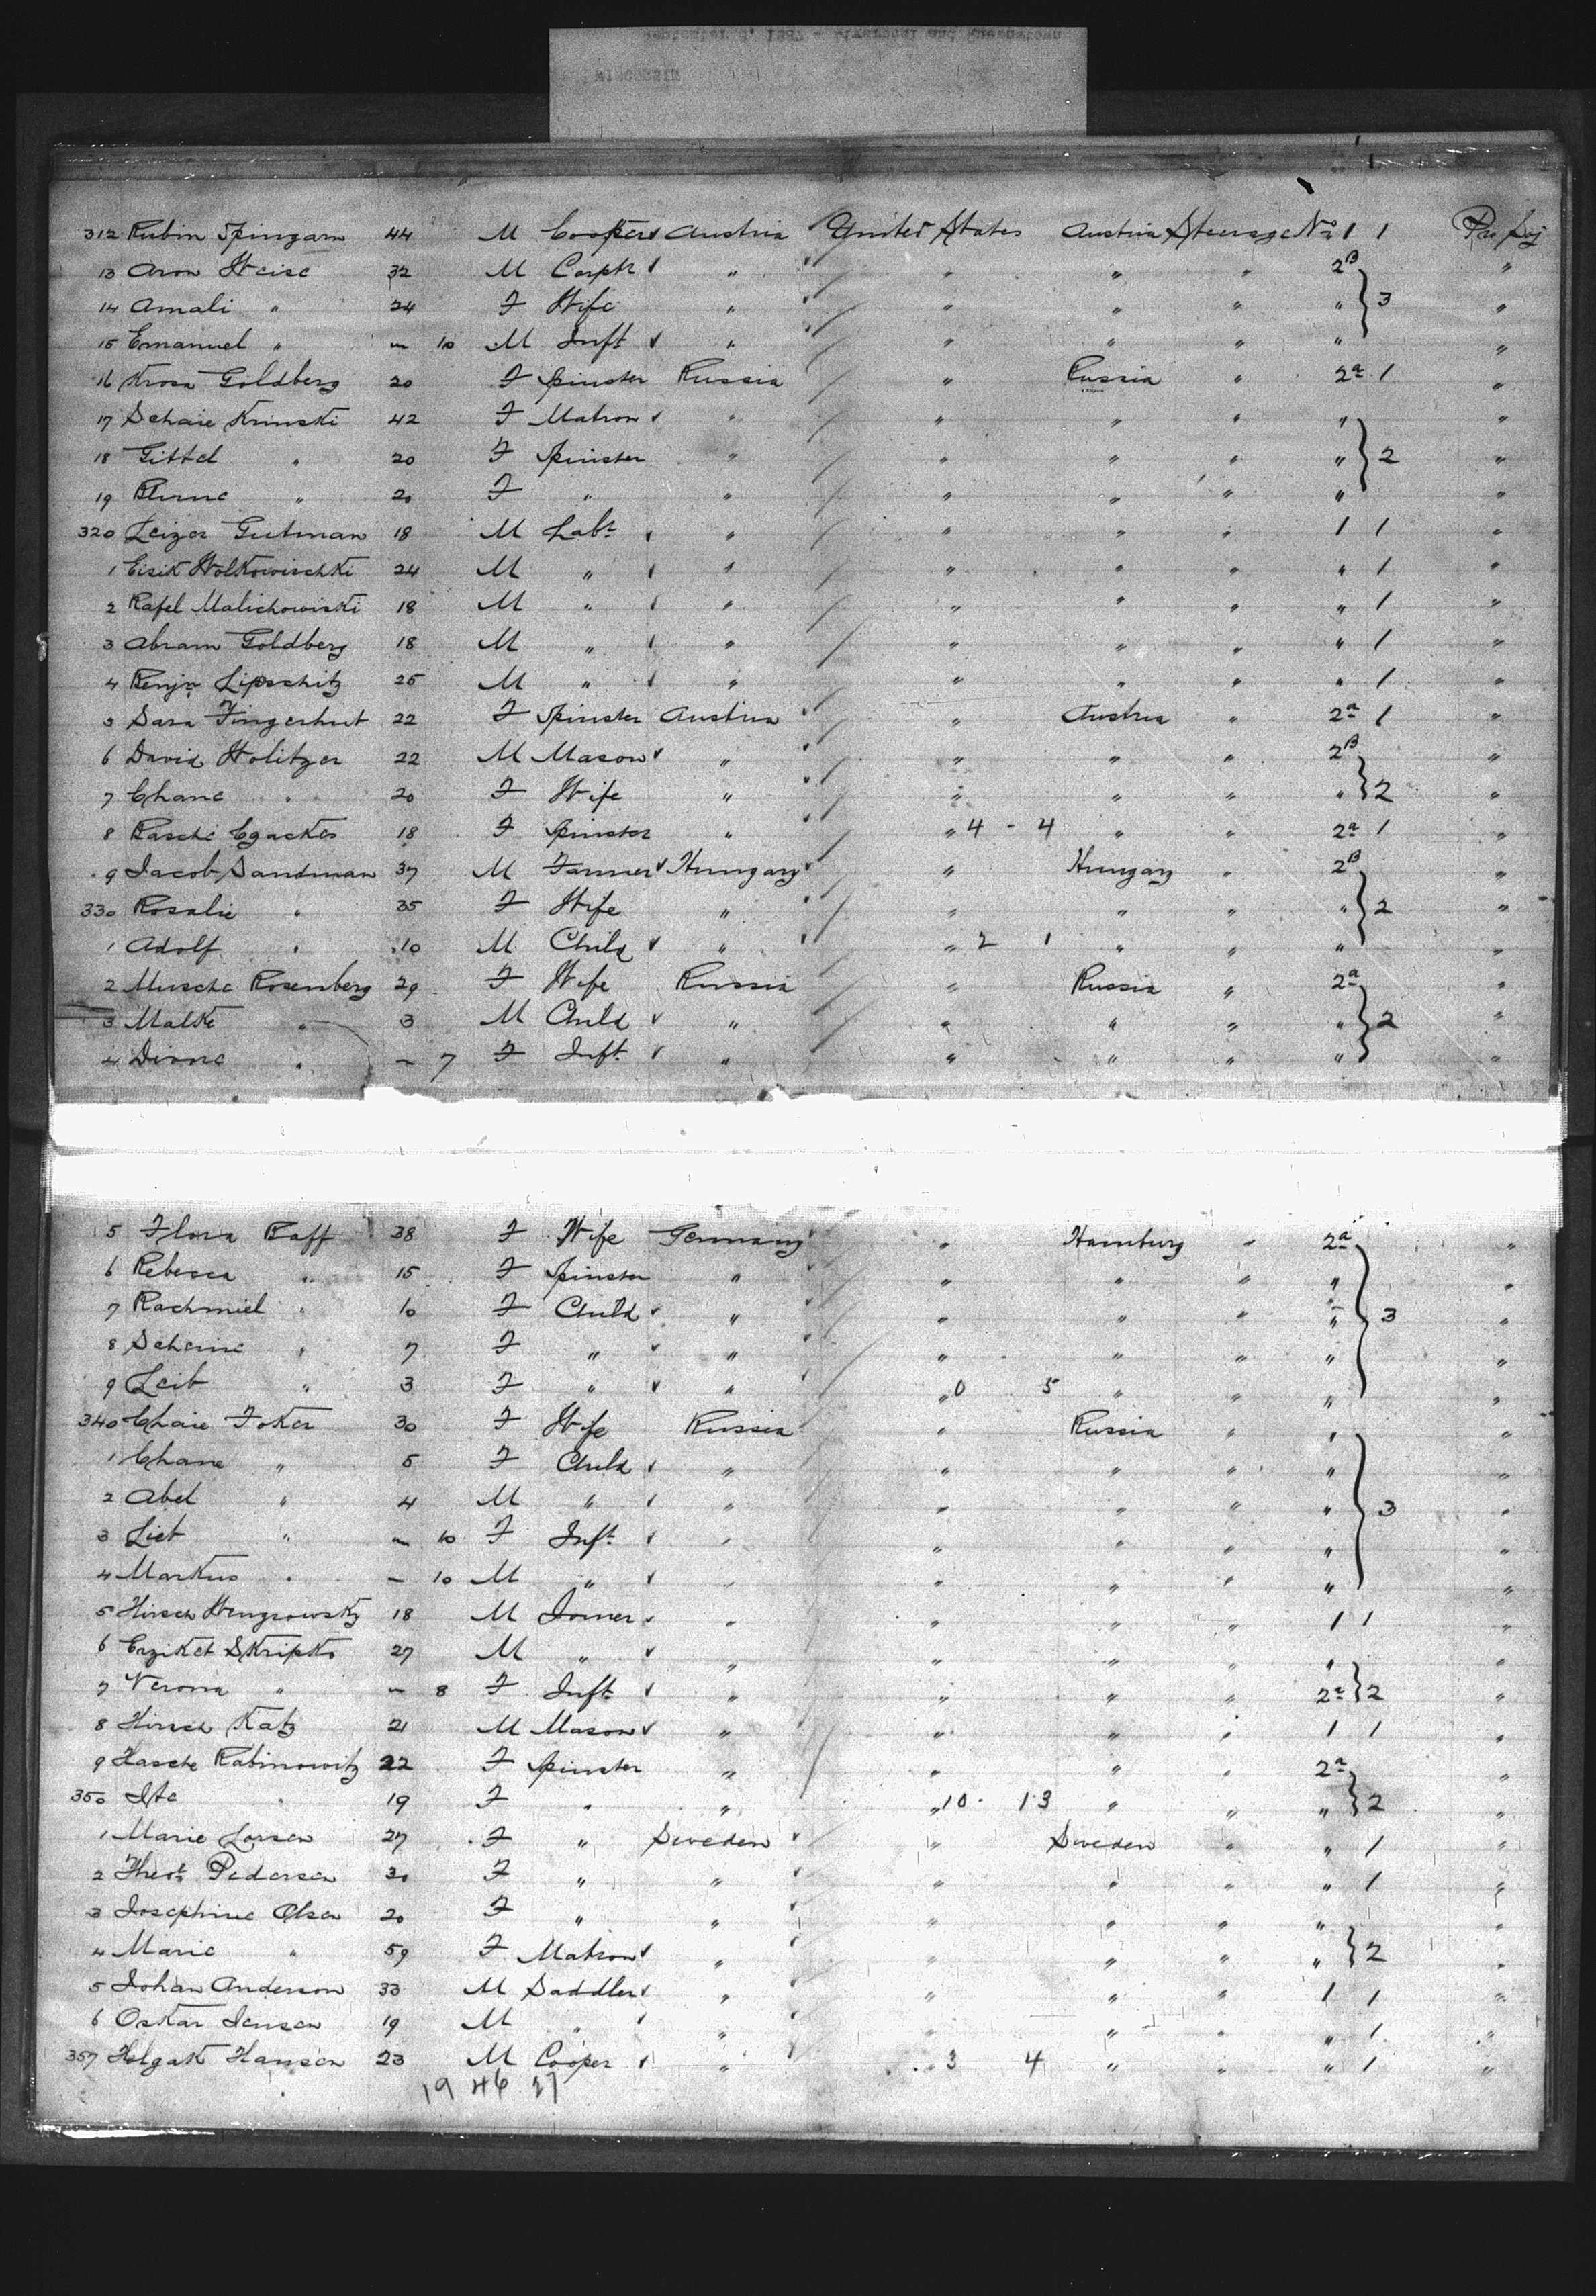 312 Rubin Spingarn 44 M Cooper Austria United States Austria Steerage No 1 1 Pro Soj
13 Aron Weise 32 M Carptr " " " " 2B "
14 Amali " 24 F Wife " " " " " 3 "
15 Emanuel " — 10 M Inft " " " " " "
16 Krosa Goldberg 20 F Spinster Russia " Russia " 2a 1 "
17 Schaie Krinski 42 F Matron " " " " " "
18 Gittel " 20 F Spinster " " " " " 2 "
19 Blume " 20 F " " " " " " "
320 Leizer Gutman 18 M Labr " " " " 1 1 "
1 Eisik Wolkowischki 24 M " " " " " " 1 "
2 Rafel Malichowiski 18 M " " " " " " 1 "
3 Abram Goldberg 18 M " " " " " " 1 "
4 Benjn Lipschitz 25 M " " " " " " 1 "
5 Sara Fingerhut 22 F Spinster Austria " Austria " 2a 1 "
6 David Wolitzer 22 M Mason " " " " 2B "
7 Chane " 20 F Wife " " " " " 2 "
8 Rasche 18 F Spinster " " 4 - 4 " " 2a 1 "
9 Jacob Sandman 37 M Farmer Hungary " Hungary " 2B "
330 Rosalie " 35 F Wife " " " " " 2 "
1 Adolf " 10 M Child " " 2 1 " " " "
2 Musche Rosenberg 29 F Wife Russia " Russia " 2a "
3 Malke " 3 M Child " " " " " 2 "
4 " — 7 F Inft " " " " " "
5 Flora Raff 38 F Wife Germany " Hamburg " 2a "
6 Rebecca " 15 F Spinster " " " " " "
7 Rachmiel " 10 F Child " " " " " 3 "
8 Scheine " 7 F " " " " " " "
9 Leib " 3 F " " " 0 5 " " " "
340 Chaie Foker 30 F Wife Russia " Russia " " "
1 Chane " 5 F Child " " " " " "
2 Abel " 4 M " " " " " " 3 "
3 Lieb " — 10 F Inft " " " " " "
4 Markus " — 10 M " " " " " " "
5 Hirsch Wengrowsky 18 M Joiner " " " " 1 1 "
6 Skripko 27 M " " " " " " "
7 Verona " — 8 F Inft " " " " 2a 2 "
8 Hirsch Katz 21 M Mason " " " " 1 1 "
9 Hasche Rabinowitz 22 F Spinster " " " " 2a "
350 Ite " 19 F " " " 10 - 13 " " " 2 "
1 Marie Larsen 27 F " Sweden " Sweden " " 1 "
2 Pedersen 30 F " " " " " " 1 "
3 Josephine Olsen 20 F " " " " " " "
4 Marie " 59 F Matron " " " " " 2 "
5 Johan Anderson 33 M Saddler " " " " 1 1 "
6 Oskar Jensen 19 M " " " " " " 1 "
357 Helgak Hansen 23 M Cooper " 3 4 " " " 1 "
19 46 27